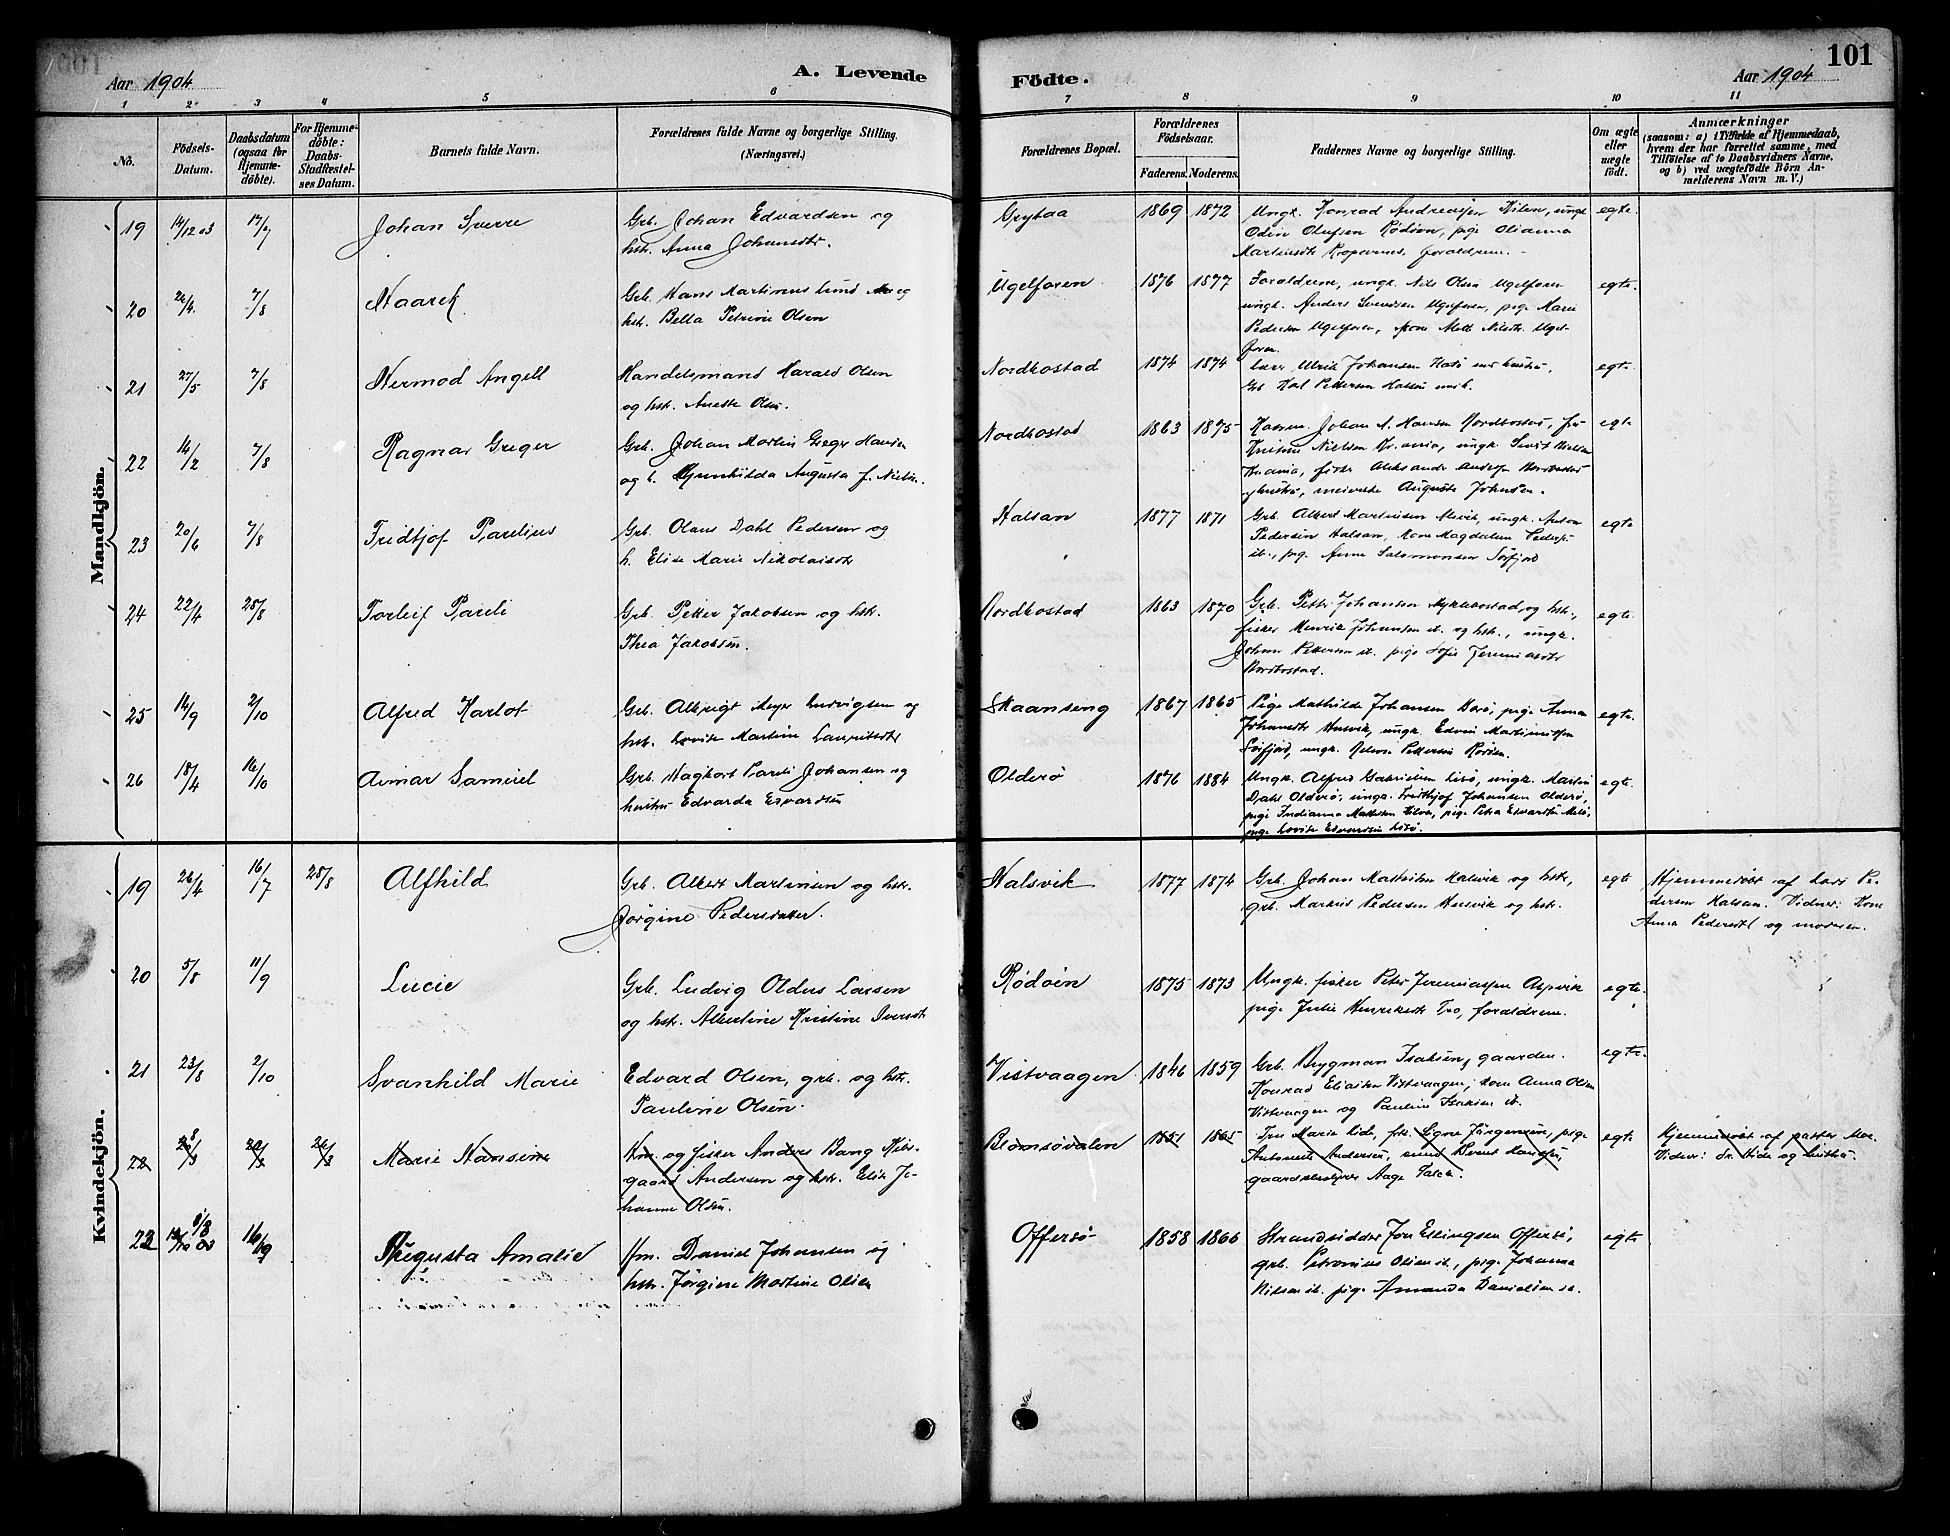 101
Aar 1904
A. Levende
Födte.
Aar 1904
1 2 3 4 5 6 7 8 9 10 11
No.
Födsels-
Datum.
Daabsdatum
(ogsaa for
Hjemme-
döbte).
For Hjemme-
döbte:
Daabs-
Stadfæstel-
ses Datum.
Barnets fulde Navn.
Forældrenes fulde Navne og borgerlige Stilling.
(Næringsvei.)
Forældrenes Bopæl.
Forældrenes
Födselsaar.
Faderens. Moderens.
Faddernes Navne og borgerlige Stilling.
Om ægte
eller
uægte
födt.
Anmærkninger
(saasom: a) i Tilfælde af Hjemmedaab,
hvem der har forrettet samme, med
Tilföielse af to Daabsvidners Navne,
og b) ved uægtefödte Börn An-
melderens Navn m. V.)
Mandkjön.
19 14/12 03 17/7 Johan Sverre
Grb. Johan Edvardsen og
hstr. Anna Johansdtr.
Grytaa 1869 1872
Ungk. Konrad Andreassen Kilen, ungk
Odin Olufsen Rödöen, pige Olianna
Martinsdtr , forældrene.
egte.
20 /4 7/8 Haarek
Grb. Hans Martinus Lund og
hstr. Bella Petrine Olsen
Ugelforen 1876 1877
Forældrene, ungk. Nils Olsen Ugelforen
ungk. Anders Svendsen Ugelforen, pige Marie
Pedersen Ugelforen, kone Mette Nilsdtr. Ugel-
foren.
egte.
21 27/5 7/8 Hermod Angell
Handelsmand Harald Olsen
og hstr. Anette Olsen.
Nordkostad 1874 1874
Lærer Ulrik Johansen med hustru,
Grb Karl Pettersen
egte.
22 14/2 7/8 Ragnar Greger
Grb. Johan Martin Greger Hansen
og h. Gunhilda Augusta f. Nielsen.
Nordkostad 1863 1875
Johan A. Hansen Nordkostad,
Nielsen Kr.ania, ungk. Nielsen
Kr.ania, fisker Aleksander Nordkostad
og hustru, meierske Auguste Johnsen.
egte
23 20/6 7/8 Fridtjof Parelius
Grb. Olaus Dahl Pedersen og
h. Elise Marie Nikolaisdtr
Halsan 1877 1871
Grb. Albert Martinsen , ungk. Anton
Pedersen Halsan, kone Magdalena Peders
ib., pige Anne Salomonsen Sörfjord
egte
24 22/4 28/8 Torleif Pareli
Grb. Petter Jakobsen og hstr.
Thea Jakobsen.
Nordkostad 1863 1870
Grb. Petter Johansen Myklebostad, og hstr.,
fisker Henrik Johansen ib. og hstr., ungk.
Johan Pettersen ib. pige Sofie Jeremiasdtr
Nordkostad.
egte.
25 14/9 2/10 Alfred Karlot
Grb. Albrigt Meyer Ludvigsen og
hstr. Lovise Martine Lauritsdtr
Skaanseng 1867 1865
Pige Mathilde Johansen , pige Anna
Johansdtr Husvik, ungk. Edvin Martinussen
Sörfjord, ungk. Pettersen Rödöen.
egte.
26 18/4 16/10 Aimar Samuel
Grb. Hagbart Pareli Johansen og
hustru Edvarda Edvardsen
Olderö 1876 1884
Ungk. Alfred Gabrielsen , ungk. Martin
Dahl Olderö, ungk. Fridthjof Johansen Olderö,
pige Indianna Mathisen , pige Petra Edvardsen ,
pige Lovise Edvardsen .
egte.
Kvindekjön.
19 26/4 16/7 28/8 Alfhild
Grb. Albert Martinsen og hstr.
Jörgine Pedersdatter.
Halsvik 1877 1874
Grb. Johan Mathisen Halsvik og hstr,
grb. Markus Pedersen Husvik og hstr.
egte
Hjemmedöbt af Lars Pe-
dersen Halsan. Vidner: Kone
Anna Pedersdtr og moderen.
20 5/8 11/9 Lucie
Grb. Ludvig Oldus Larsen
og hstr. Albertine Kristine Iversdtr
Rödöen 1875 1873
Ungk. fisker Peter Jeremiassen Aspvik
pige Julie Henriksdtr Tro, forældrene.
egte.
21 23/8 2/10 Svanhild Marie
Edvard Olsen, grb. og hstr.
Pauline Olsen.
Vistvaagen 1846 1859
Grb. Brygman Isaksen, gaarden.
Konrad Eliassen Vistvaagen, kone Anna Olsen
Vistvaagen og Pauline Isaksen ib.
egte.
22 Marie Hansine
Hm. og fisker Anders Bang Kjels-
gaard Andersen og hstr. Elise Jo-
hanne Olsen.
Blomsövalen 1851 1865
Fru Marie Lide, frk. Signe Jürgensen, pige
Antonette Andersen, Bernt Hansen,
gaardsbestyrer Aage Falck.
egte
Hjemmedöbt af pastor
Vidner: Dr. Lide og hustru.
22 8/8 03 16/9 Augusta Amalie
Hm. Daniel Johansen og
hstr. Jörgine Martine Olsen
Offersö 1858 1866
Strandsidder Jon Ellingsen Offersö,
grb. Petronius Olsen ib., pige Johanna
Nilsen ib. pige Amanda Danielsen ib.
egte